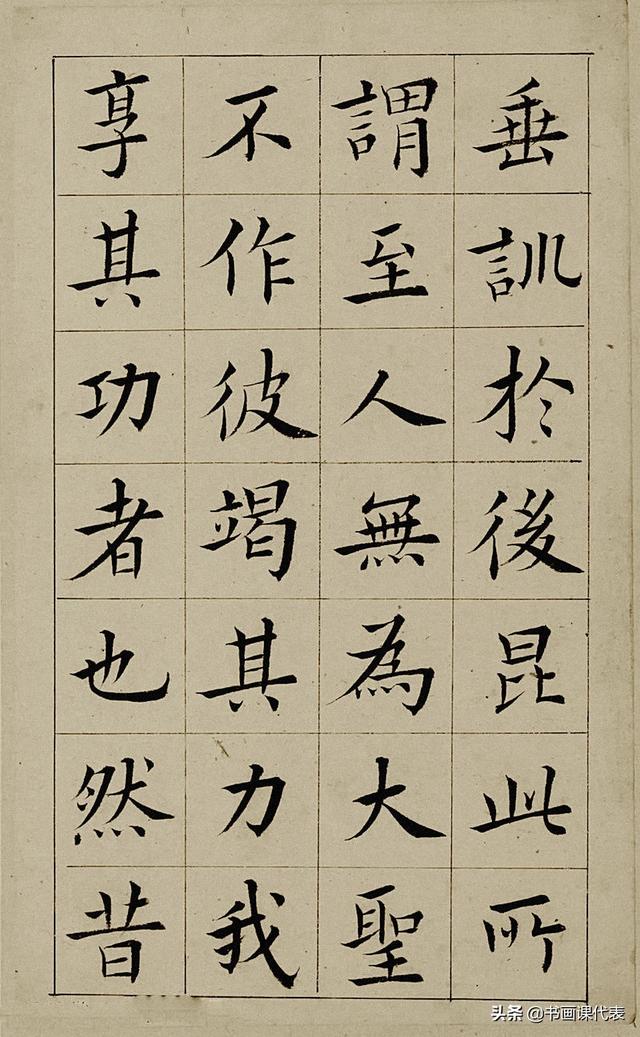 垂訓於後昆此所
謂至人無為大聖
不作彼竭其力我
享其功者也然昔
头条 @书画课代表